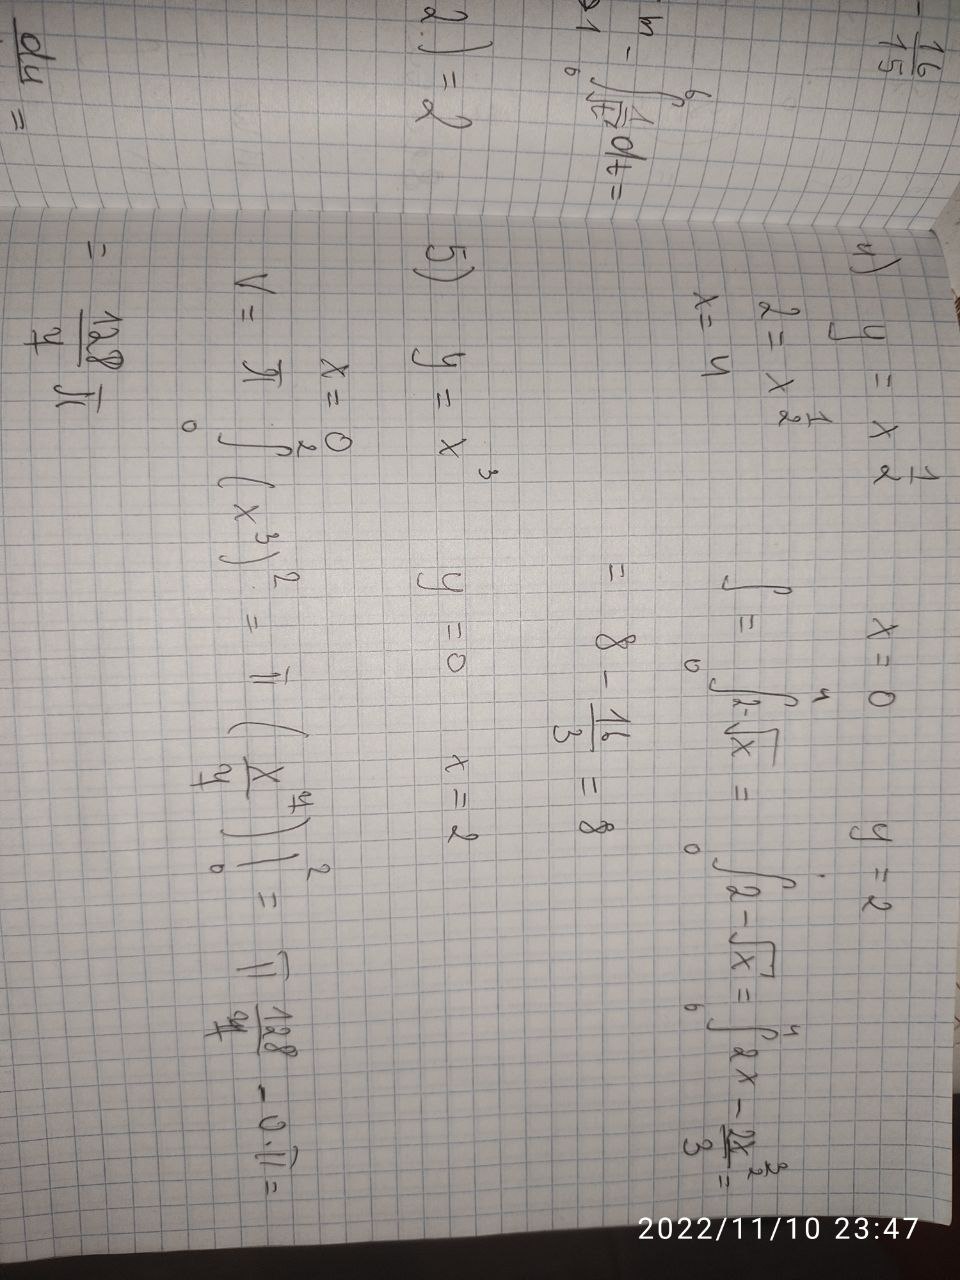 - 16/15
m - ∫ 1/√t dt =
2.) = 2
dy =
4) y = x^1/2 x = 0 y = 2
2 = x^1/2
x = 4
∫ = ∫_0^4 2-√x = ∫_0 2 - √x = ∫_0^4 2x - 2x^3/2 / 3 =
= 8 - 16/3 = 8
5) y = x^3 y = 0 x = 2
x = 0
V = π ∫_0^2 (x^3)^2 = π (x^7/7)|_0^2 = π 128/7 - 0·π =
= 128/7 π
2022/11/10 23:47